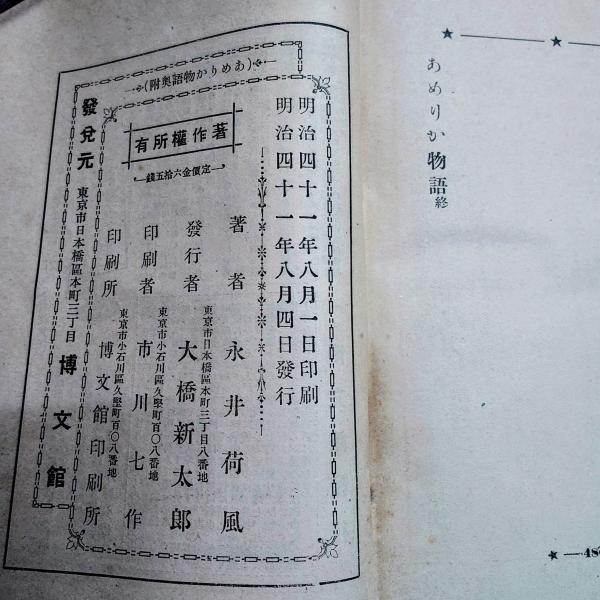 あめりか物語終
(あめりか物語奥附)
明治四十一年八月一日印刷
明治四十一年八月四日發行
著作權所有
定價金六拾五錢
著者 永井荷風
東京市日本橋區本町三丁目八番地
發行者 大橋新太郎
東京市小石川區久堅町百〇八番地
印刷者 市川七作
東京市小石川區久堅町百〇八番地
印刷所 博文館印刷所
發兌元 東京市日本橋區本町三丁目 博文館